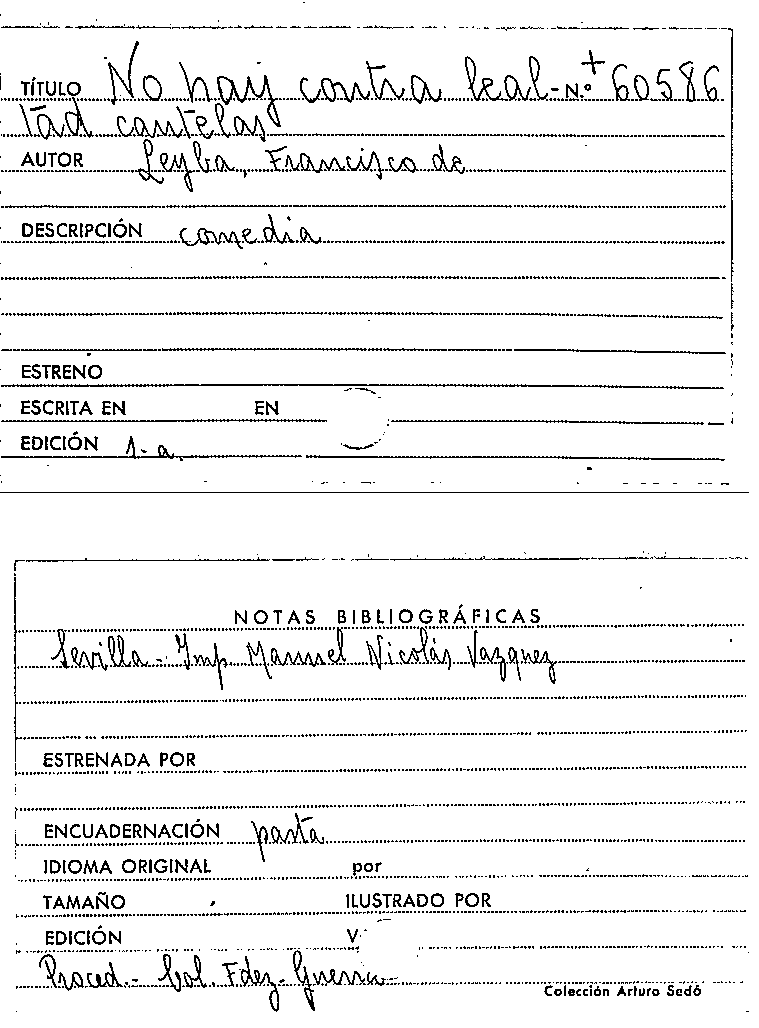 TÍTULO No hay contra leal- N.º + 60586
tad cautelas
AUTOR Leyba, Francisco de
DESCRIPCIÓN comedia
ESTRENO
ESCRITA EN EN
EDICIÓN 1-a.
NOTAS BIBLIOGRÁFICAS
Sevilla - Imp Manuel Nicolás Vazquez
ESTRENADA POR
ENCUADERNACIÓN pasta
IDIOMA ORIGINAL por
TAMAÑO ILUSTRADO POR
EDICIÓN V
Proced.- Col. Fdez-Guerra-
Colección Arturo Sedó